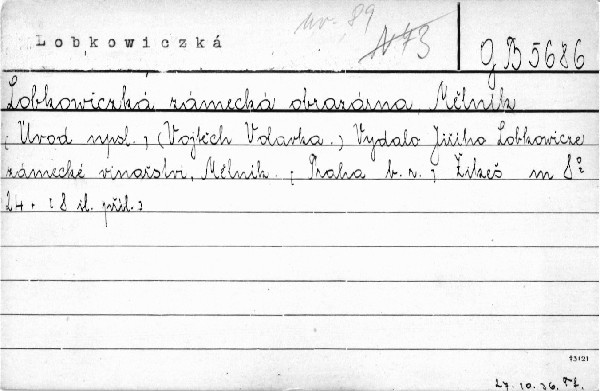 nv. 89
Lobkowiczká
N 73
GB 5686
Lobkowiczká zámecká obrazárna Mělník
[Úvod nps]. (Vojtěch Volavka.) Vydalo Jiřího Lobkowicze
zámecké vinařství, Mělník. [Praha b. r.] Zikeš m 8°
24 + [8 sl. příl.]
13121
27. 10. 36.